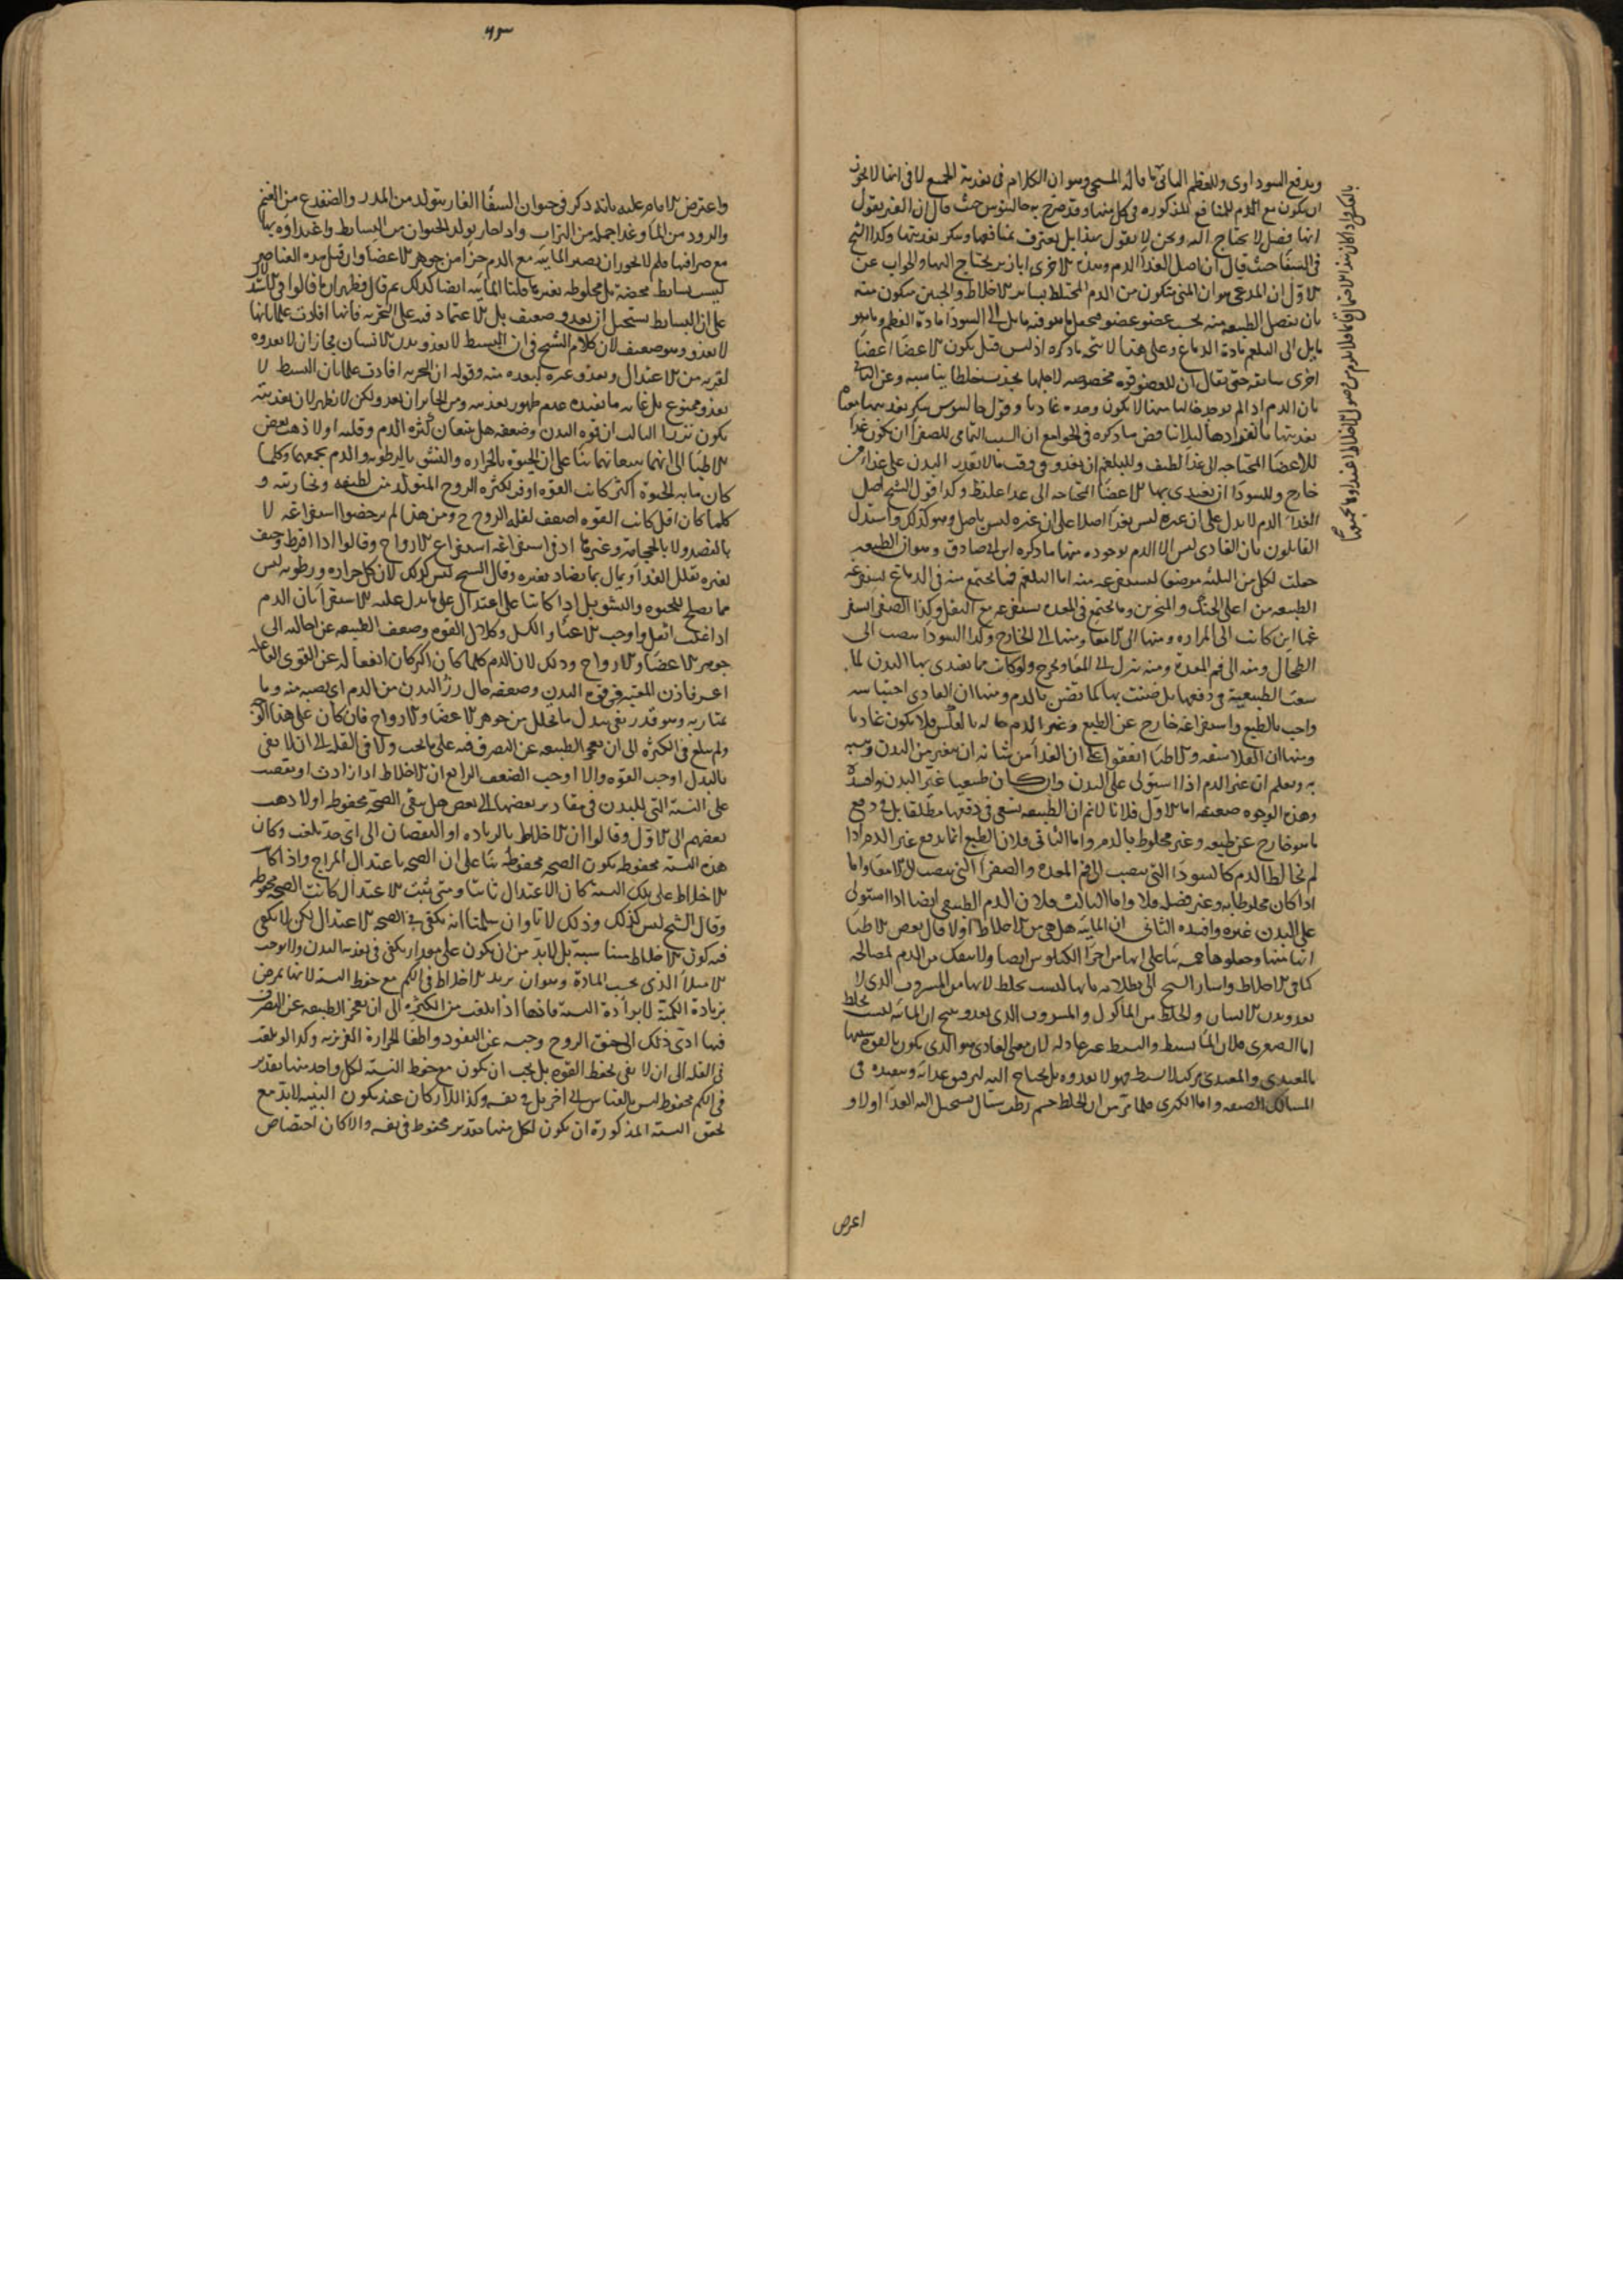 ويدفع السوداوى وللعظم المائى بما قاله المسيحى وهو ان الكلام فى تغدية الجميع لا فى انها لا يجوز
ان يكون مع الدم للمنافع المذكوره فى كل منها وقد صرح به جالينوس حيث قال ان الغير يقول
انها فضل لا يحتاج اليه ونحن لا نقول هذا بل نعترف بمنافعها وننكر تغديتها وكذا الشيخ
فى الشفا حيث قال ان اصل الغذا الدم وهذه الاخرى ابازير يحتاج اليها والجواب عن
الاول ان المدعى هو ان المنى يتكون من الدم المختلط بسائر الاخلاط والجنين يتكون منه
بان تفصل الطبيعه منه بحسب عضو عضو فيجعل ما هو فيه مايل الى السودا مادة العظم وما هو
مايل الى البلغم مادة الدماغ وعلى هذا لا يتجه ما ذكره اذ ليس قبل يكون الاعضا اعضا
اخرى سابقه حتى يقال ان للعضو قوه مخصوصه لاجلها يجذب خلطا يناسبه وعن الثانى
بان الدم اذا لم يوجد خاليا منها لا يكون وحده غاديا وقول جالينوس ينكر تغديتها معناه
تغديتها بانفرادها ليلا يناقض ما ذكره فى الجوامع ان السبب التمامى للصفرا ان يكون غذا
للاعضا المحتاجه الى غذا لطيف وللبلغم ان يغدو فى وقت ما لا يقدر البدن على غذا من
خارج وللسودا ان يغتدى بها الاعضا المحتاجه الى غذا غليظ وكذا قول الشيخ اصل
الغذا الدم لا يدل على ان غيره ليس بغذا اصلا على ان غيره ليس باصل وهو كذلك واستدل
القايلون بان الغادى ليس الا الدم بوجوده منها ما ذكره ابن ابى صادق وهو ان الطبيعه
جعلت لكل من الثلثه موضعا ليستفرغه منه اما البلغم فما يجتمع منه فى الدماغ يستفرغه
الطبيعه من اعلى الحنك والمنخرين وما يجتمع فى المعده يستفرغه مع الثفل وكذا الصفرا
الى المراره ومنها الى الامعا ومنها الى الخارج وكذا السودا ينصب الى
الطحال ومنه الى فم المعدة ومنه ينزل الى المعا ويخرج ولو كانت مما يغتدى بها البدن لما
سعت الطبيعية فى دفعها بل ضنت بها كما تضن بالدم ومنها ان الغادى احتباسه
واجب بالطبع واستفراغه خارج عن الطبع وغير الدم حاله بالعكس فلا يكون غاديا
ومنها ان الفلاسفه والاطبا اتفقوا على ان الغذا من شانه ان يتغير من البدن ويشبه
به ونعلم ان غير الدم اذا استولى على البدن وان كان طبيعيا غير البدن وافسده
وهذه الوجوه ضعيفه اما الاول فلانا لا نم ان الطبيعه تسعى فى دفعها مطلقا بل فى دفع
ما هو خارج عن طبيعه وغير مخلوط بالدم واما الثانى فلان الطبع انما يدفع غير الدم اذا
لم يخالط الدم كالسودا التى ينصب الى فم المعدة والصفرا التى ينصب الى الامعا واما
اذا كان مخلوطا به وغير فضله فلا واما الثالث فلان الدم الطبيعى ايضا اذا استولى
على البدن غيره وافسده الثانى ان المائيه هل هى من الاخلاط اولا قال بعض الاطبا
انها منها وجعلوها خمسه بنا على انها من اجزا الكيلوس ايضا ولا ينفك من الدم لمصالحه
كما فى الاخلاط واشار الشيخ الى بطلانه بانها ليست بخلط لانها من المشروب الذى لا
يغدو بدن الانسان والخلط من الماكول والمشروب الذى يغدو ينتج ان المائيه ليست بخلط
اما الصغرى فلان الما بسيط والبسيط غير غاد له لان معنى الغادى هو الذى يكون بالقوه شبيها
بالمغتدى والمغتدى مركب لا بسيط فهو لا يغدوه بل يحتاج اليه لترقيق غذائه وتنفيذه فى
المسالك الضيقه واما الكبرى فلما مر من ان الخلط جسم رطب سيال يستحيل اليه الغذا اولا و
اعرض
٦٣
واعترض الامام عليه بانه ذكر فى حيوان الشفا الفار يتولد من المدر والضفدع من الغيم
والدود من الما وغذا جمله من التراب واذا جاز تولد الحيوان من البسايط واغتداوه بها
مع صرافتها فلم لا يجوز ان يصير المائيه مع الدم جزا من جوهر الاعضا وان قيل هذه العناصر
ليست بسايط محضة بل مخلوطه بغيرها قلنا المائيه ايضا كذلك ثم قال فظهر ان ما قالوا
على ان البسايط يستحيل ان يغدو ضعيف بل الاعتماد فيه على التجربه فانها افادت علما بانها
لا يغدو وهو ضعيف لان كلام الشيخ فى ان البسيط لا يغدو بدن الانسان بجاز ان لا يغدوه
لقربه من الاعتدال ويغدو غيره لبعده منه وقوله ان التجربه افادت علما بان البسيط لا
يغدو ممنوع بل غايه ما يفيده عدم ظهور تغديته ومن الجايز ان يغدو ولكن لا يظهر لان تغديته
يكون نزرا الثالث ان قوه البدن وضعفه هل يتبعان كثره الدم وقلته اولا ذهب بعض
الاطبا الى انهما يتبعانهما بنا على ان الحيوة بالحراره والنشو بالرطوبه والدم يجمعهما وكلما
كان ما به الحيوة اكثر كانت القوه اوفر لكثره الروح المتولد من لطيفه وبخاريته و
كلما كان اقل كانت القوه اضعف لقله الروح ح ومن هذا لم يرخصوا استفراغه لا
بالفصد ولا بالحجامه وغيرها اذ فى استفراغه استفراغ الارواح وقالوا اذا افرط وخيف
تغيره يقلل الغذا ويمال بما يضاد تغيره وقال الشيخ ليس كذلك لان كل حراره ورطوبه ليس
مما يصلح للحيوه والنشو بل اذا كانتا على اعتدال على ما يدل عليه الاستقرا بان الدم
اذا غلب اثقل واوجب الاعيا والكسل وكلال القوه وضعف الطبيعه عن احالته الى
جوهر الاعضا والارواح وذلك لان الدم كلما كان اكثر كان انفعاله عن القوى الفاعله
اعسر فاذن المعتبر فى قوه البدن وضعفه حال رزا البدن من الدم اى نصيبه منه وما
يمتاز به وهو قدر يفى ببدل ما يتحلل من جوهر الاعضا والارواح فان كان على هذا
ولم يبلغ فى الكثره الى ان يعجز الطبيعه عن التصرف فيه على ما يجب ولا فى القله الى ان لا يفى
بالبدل اوجب القوه والا اوجب الضعف الرابع ان الاخلاط اذا زادت او نقصت
على النسبه التى للبدن فى مقادير بعضها الى بعض هل يبقى الصحه محفوظه اولا ذهب
بعضهم الى الاول وقالوا ان الاخلاط بالزياده او النقصان الى اى حد بلغت وكان
هذه النسبه محفوظه يكون الصحه محفوظه بنا على ان الصحه باعتدال المزاج واذا كان
الاخلاط على تلك النسبه كان الاعتدال ثابتا ومتى ثبت الاعتدال كانت الصحه محفوظه
وقال الشيخ ليس كذلك وذلك لانا وان سلمنا انه يكفى فى الصحه الاعتدال لكن لا يكفى
فيه كون الاخلاط متناسبه بل لابد من ان يكون على مقدار يكفى فى تغديه البدن والا يوجب
الامتلا الذى بحسب المادة وهو ان يزيد الاخلاط فى الكم مع حفظ النسبه لانها تمرض
بزيادة الكمية لا برداءة النسبه فانها اذا بلغت من الكثره الى ان يعجز الطبيعه عن التصرف
فيها ادى ذلك الى خنق الروح وحبسه عن النفوذ واطفا الحرارة الغريزيه وكذا لو بلغت
فى القله الى ان لا يفى لحفظ القوه بل يجب ان يكون مع حفظ النسبه لكل واحد منها تقدير
فى الكم محفوظ ليس بالقياس الى اخر بل فى نفسه وكذا الاركان عند تكون البنيه لابد مع
تحقق النسبه المذكورة ان يكون لكل منها تقدير محفوظ فى نفسه والا كان اختصاص